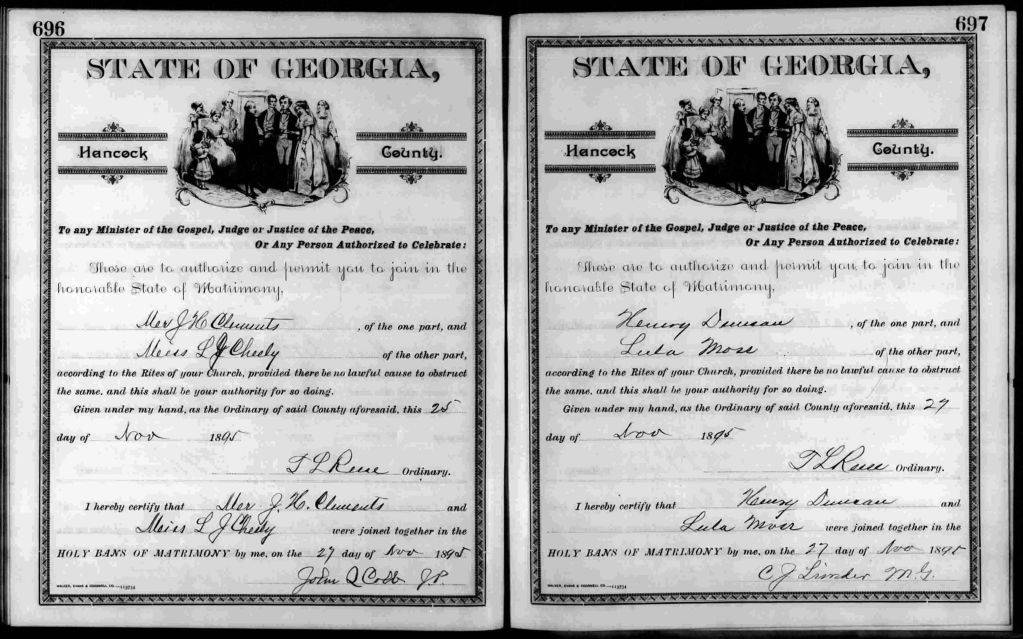 696
STATE OF GEORGIA,
Hancock County.
To any Minister of the Gospel, Judge or Justice of the Peace,
Or Any Person Authorized to Celebrate:
These are to authorize and permit you to join in the
honorable State of Matrimony,
Mr J H Clements , of the one part, and
Miss L J Cheely of the other part,
according to the Rites of your Church, provided there be no lawful cause to obstruct
the same, and this shall be your authority for so doing.
Given under my hand, as the Ordinary of said County aforesaid, this 25
day of Nov 1895
T L Reese Ordinary.
I hereby certify that Mr J. H. Clements and
Miss L J Cheely were joined together in the
HOLY BANS OF MATRIMONY by me, on the 27 day of Nov 1895
John Q Cobb J.P.
WALKER, EVANS & COGSWELL CO.
697
STATE OF GEORGIA,
Hancock County.
To any Minister of the Gospel, Judge or Justice of the Peace,
Or Any Person Authorized to Celebrate:
These are to authorize and permit you to join in the
honorable State of Matrimony,
Henry Duncan , of the one part, and
Lula Moss of the other part,
according to the Rites of your Church, provided there be no lawful cause to obstruct
the same, and this shall be your authority for so doing.
Given under my hand, as the Ordinary of said County aforesaid, this 27
day of Nov 1895
T L Reese Ordinary.
I hereby certify that Henry Duncan and
Lula Moss were joined together in the
HOLY BANS OF MATRIMONY by me, on the 27 day of Nov 1895
C J M.G.
WALKER, EVANS & COGSWELL CO.